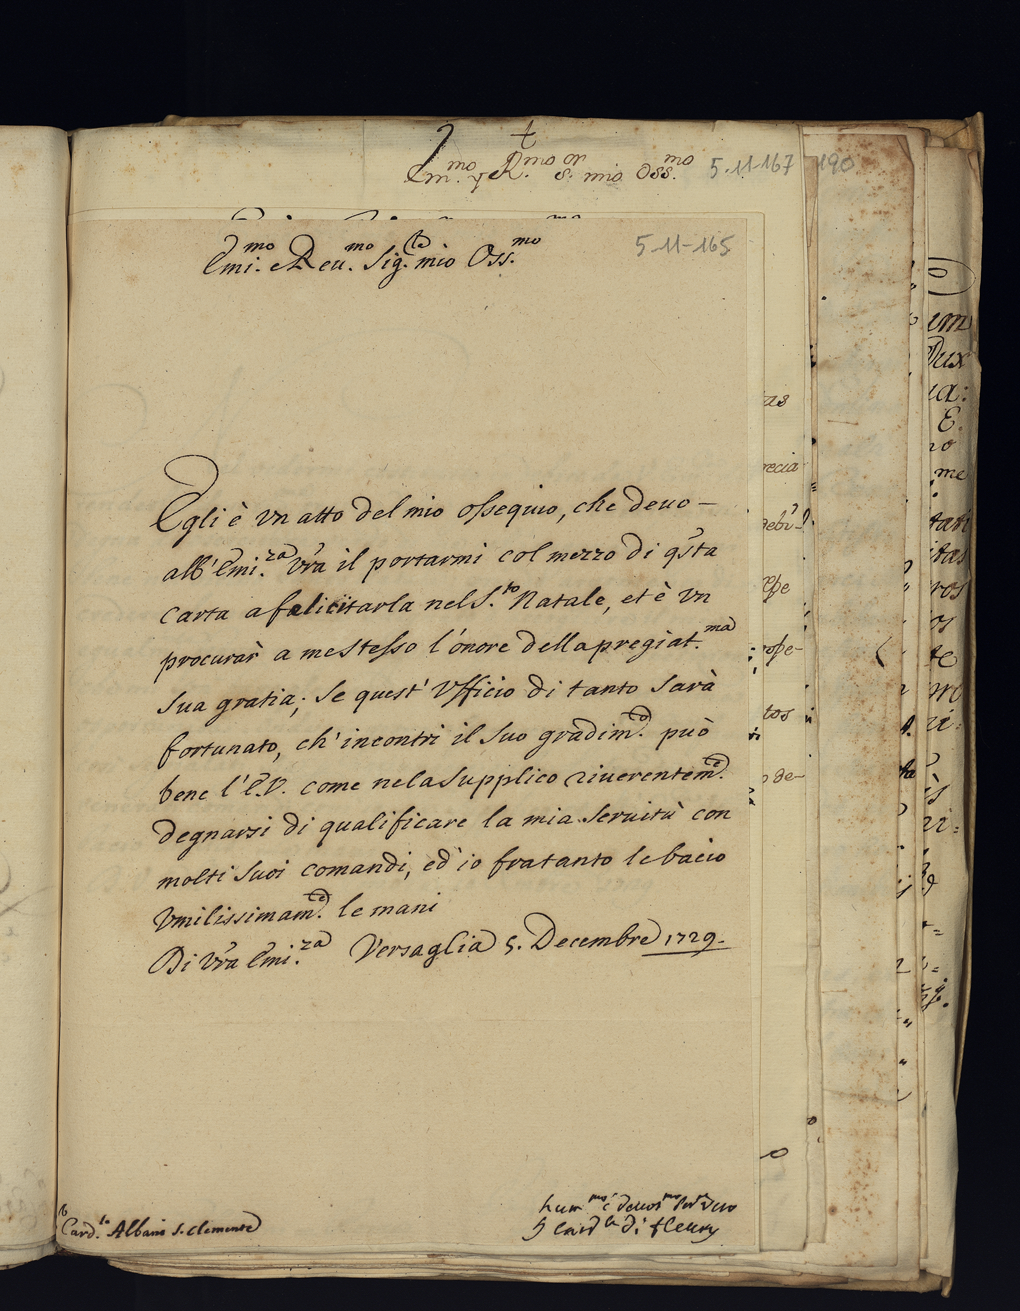 Em.mo y R.mo S.or mio Oss.mo 5-11-167 190
Emi.mo e Reu.mo Sig.re mio Oss.mo 5-11-165
Egli è Vn atto del mio ossequio, che deuo –
all'Emi.za Vr̃a il portarmi col mezzo di q̃sta
carta a felicitarla nel S.to Natale, et è Vn
procurar à me stesso l'onore della pregiat.ma
sua gratia; se quest' Vfficio di tanto sarà
fortunato, ch'incontri il suo gradim.to può
bene l'E.V. come ne la supplico riuerentem.te
degnarsi di qualificare la mia seruitù con
molti suoi comandi, ed io fratanto le bacio
Vmilissimam.te le mani
Di Vr̃a Emi.za Versaglia 5. Decembre 1729.
hum.mo e deuot.mo ser.re vero
Card.le di fleury
Card.le Albani S. Clemente
tas
recia
debi-
rope-
tos
o de-
um
Dux
E.
no
me
itas
ros